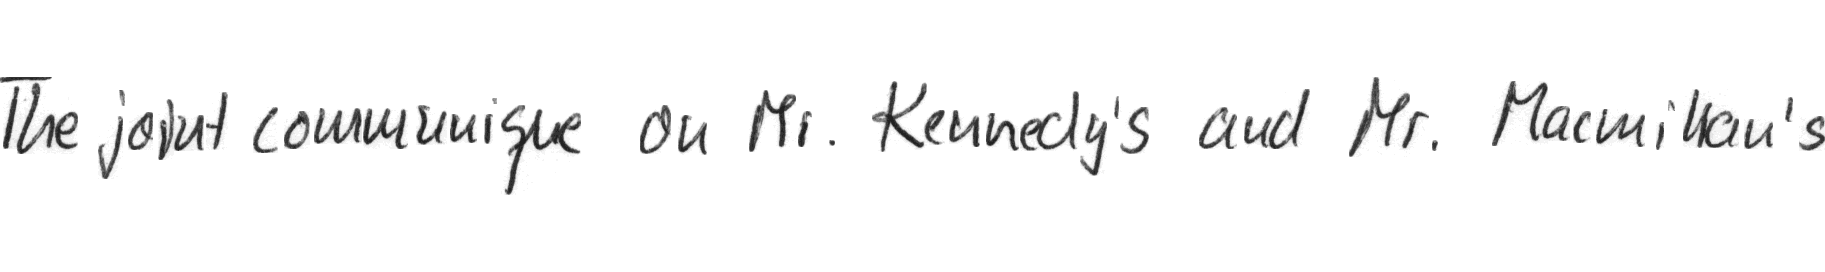 The joint communique on Mr. Kennedy's and Mr. Macmillan's